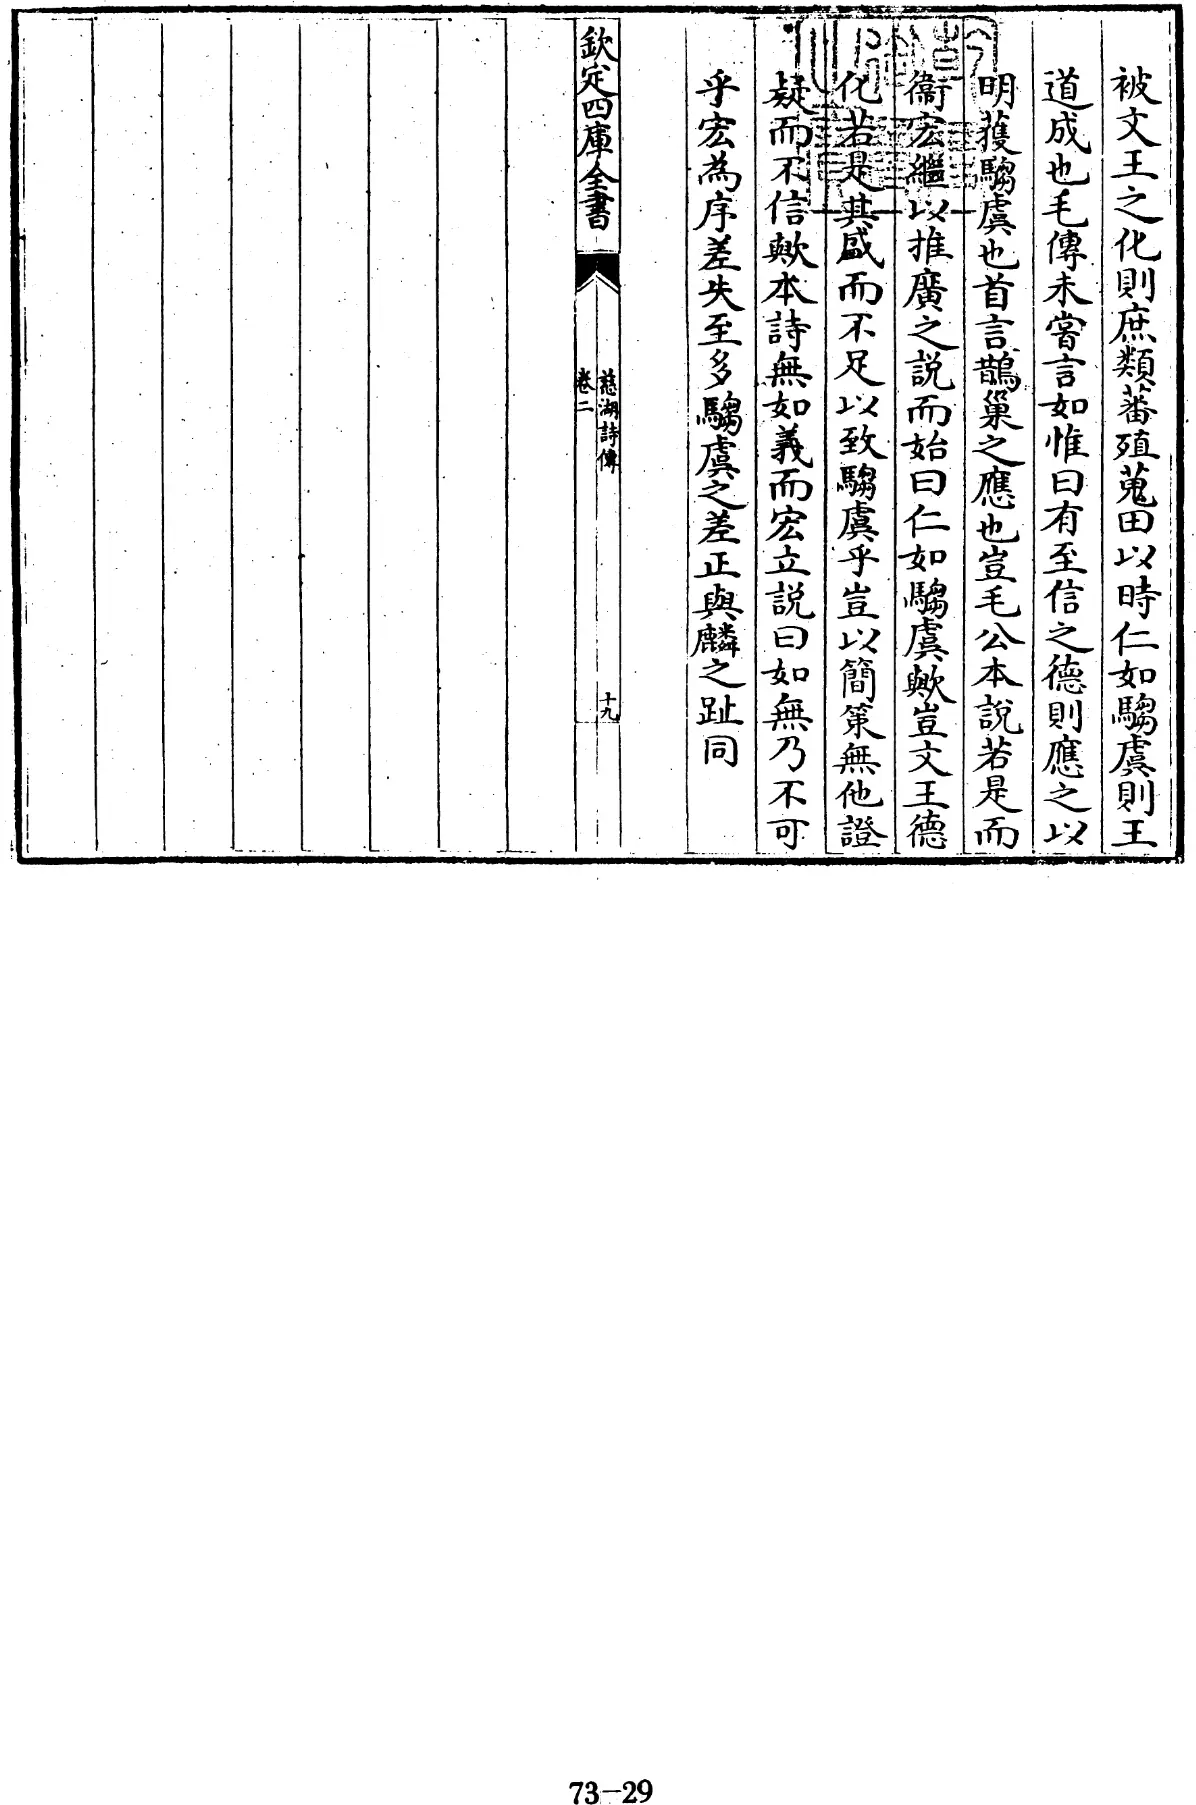 被文王之化則庶類蕃殖蒐田以時仁如騶虞則王
道成也毛傳未嘗言如惟曰有至信之德則應之以
明獲騶虞也首言鵲巢之應也豈毛公本說若是而
衞宏繼以推廣之說而始曰仁如騶虞歟豈文王德
化若是其盛而不足以致騶虞乎豈以簡策無他證
疑而不信歟本詩無如義而宏立說曰如無乃不可
乎宏為序差失至多騶虞之差正與麟之趾同
欽定四庫全書
慈湖詩傳
卷二
十九
73-29